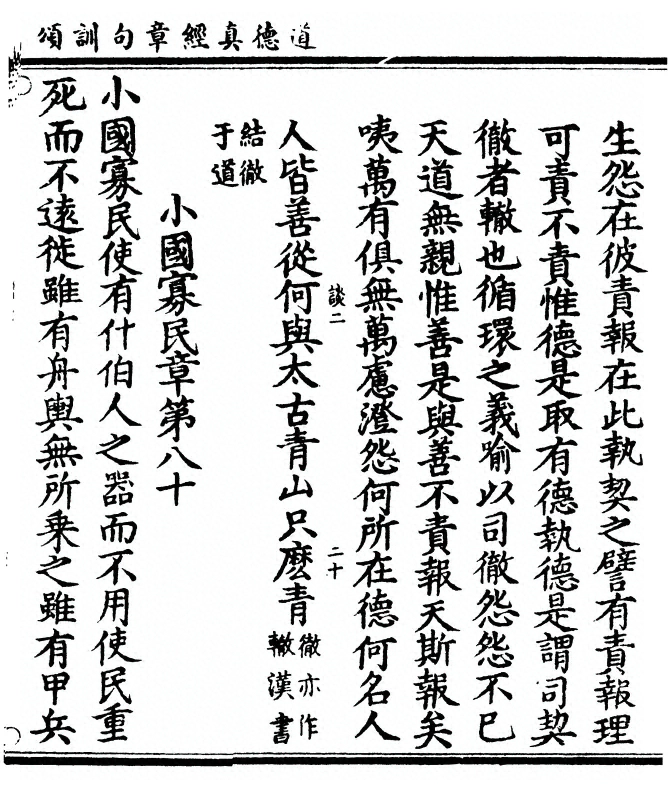 道德真經章句訓頌
生怨在彼責報在此執契之譬有責報理
可責不責惟德是取有德執德是謂司契
徹者轍也循環之義喻以司徹怨怨不已
天道無親惟善是與善不責報天斯報矣
咦萬有俱無萬慮澄怨何所在德何名人
談二
二十
人皆善從何與太古青山只麽青
徹亦作
轍漢書
結徹
于道
小國寡民章第八十
小國寡民使有什伯人之器而不用使民重
死而不遠徙雖有舟輿無所乘之雖有甲兵